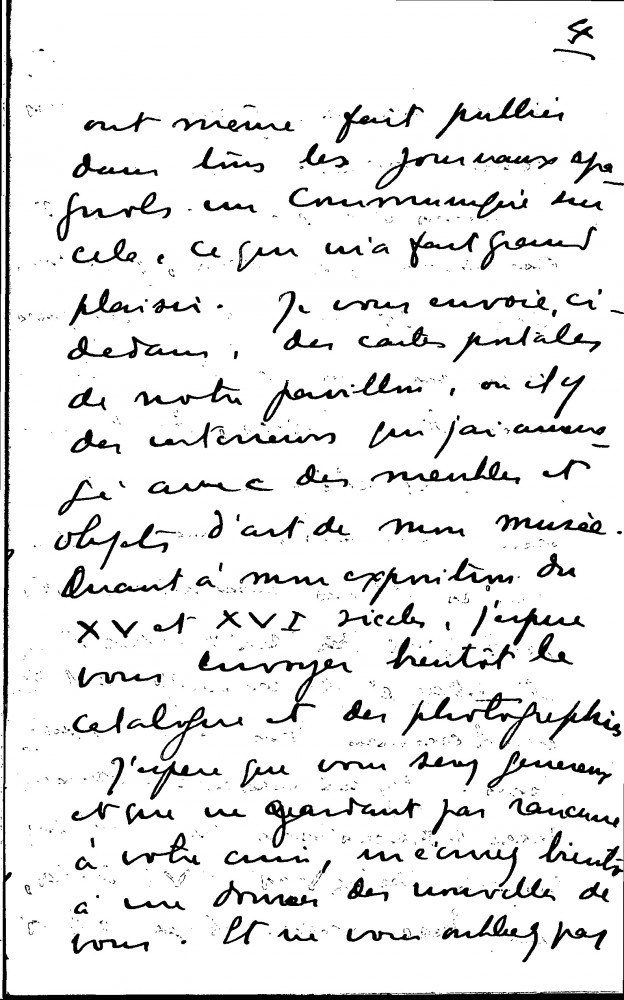 4
ont même fait publier
dans tous les journaux espa-
gnols un communiqué sur
cela, ce qui m'a fait grand
plaisir. Je vous envoie, ci-
dedans, des cartes postales
de notre pavillon, ou il y
des interieurs que j'ai amena-
gé avec des meubles et
objets d'art de mon musée.
Quant à mon exposition du
XV et XVI siecles, j'espere
vous envoyer bientôt le
catalogue et des photographies
J'espere que vous serez genereux
et que ne gardant pas rancune
à votre ami,
à me donner des nouvelles de
vous. Et ne vous oubliez pas